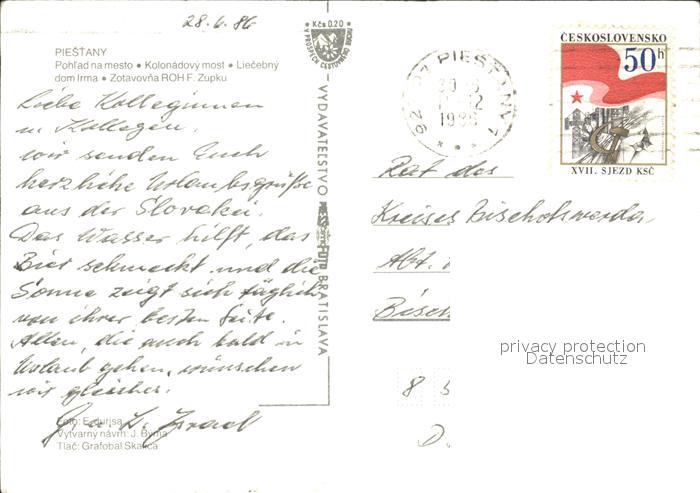 28.6.86
Kčs 0.20
V PROSPECH CESTOVNÉHO RUCHU
PIEŠŤANY
Pohľad na mesto • Kolonádový most • Liečebný
dom Irma • Zotavovňa ROH F. Zupku
Liebe Kolleginnen
u. Kollegen.
wir senden Euch
herzliche Urlaubsgrüße
aus der Slovakei.
Das Wasser hilft, das
Bier schmeckt und die
Sonne zeigt sich täglich
von ihrer besten Seite.
Allen, die auch bald in
Urlaub gehen, wünschen
wir gleiches.
Foto: E.
Výtvarný návrh: J.
Tlač: Grafobal Skalica
VYDAVATEĽSTVO
BRATISLAVA
PIEŠŤANY 1
1986
ČESKOSLOVENSKO
50h
XVII. SJEZD KSČ
Rat des
Kreises Bischofswerda
Abt.
Bisch
8
D.
privacy protection
Datenschutz